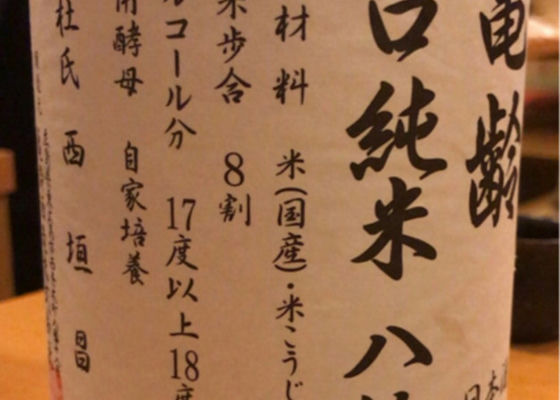 亀齢
口純米 八
材料 米(国産)・米こうじ
米歩合 8割
ルコール分 17度以上18度
用酵母 自家培養
杜氏 西垣 昌
日本酒